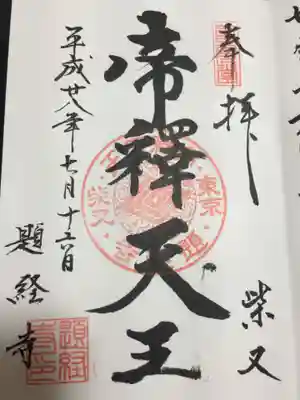 奉拝
柴又
帝釋天王
平成廿八年七月十三日
題経寺
東京
柴又
題経
寺印